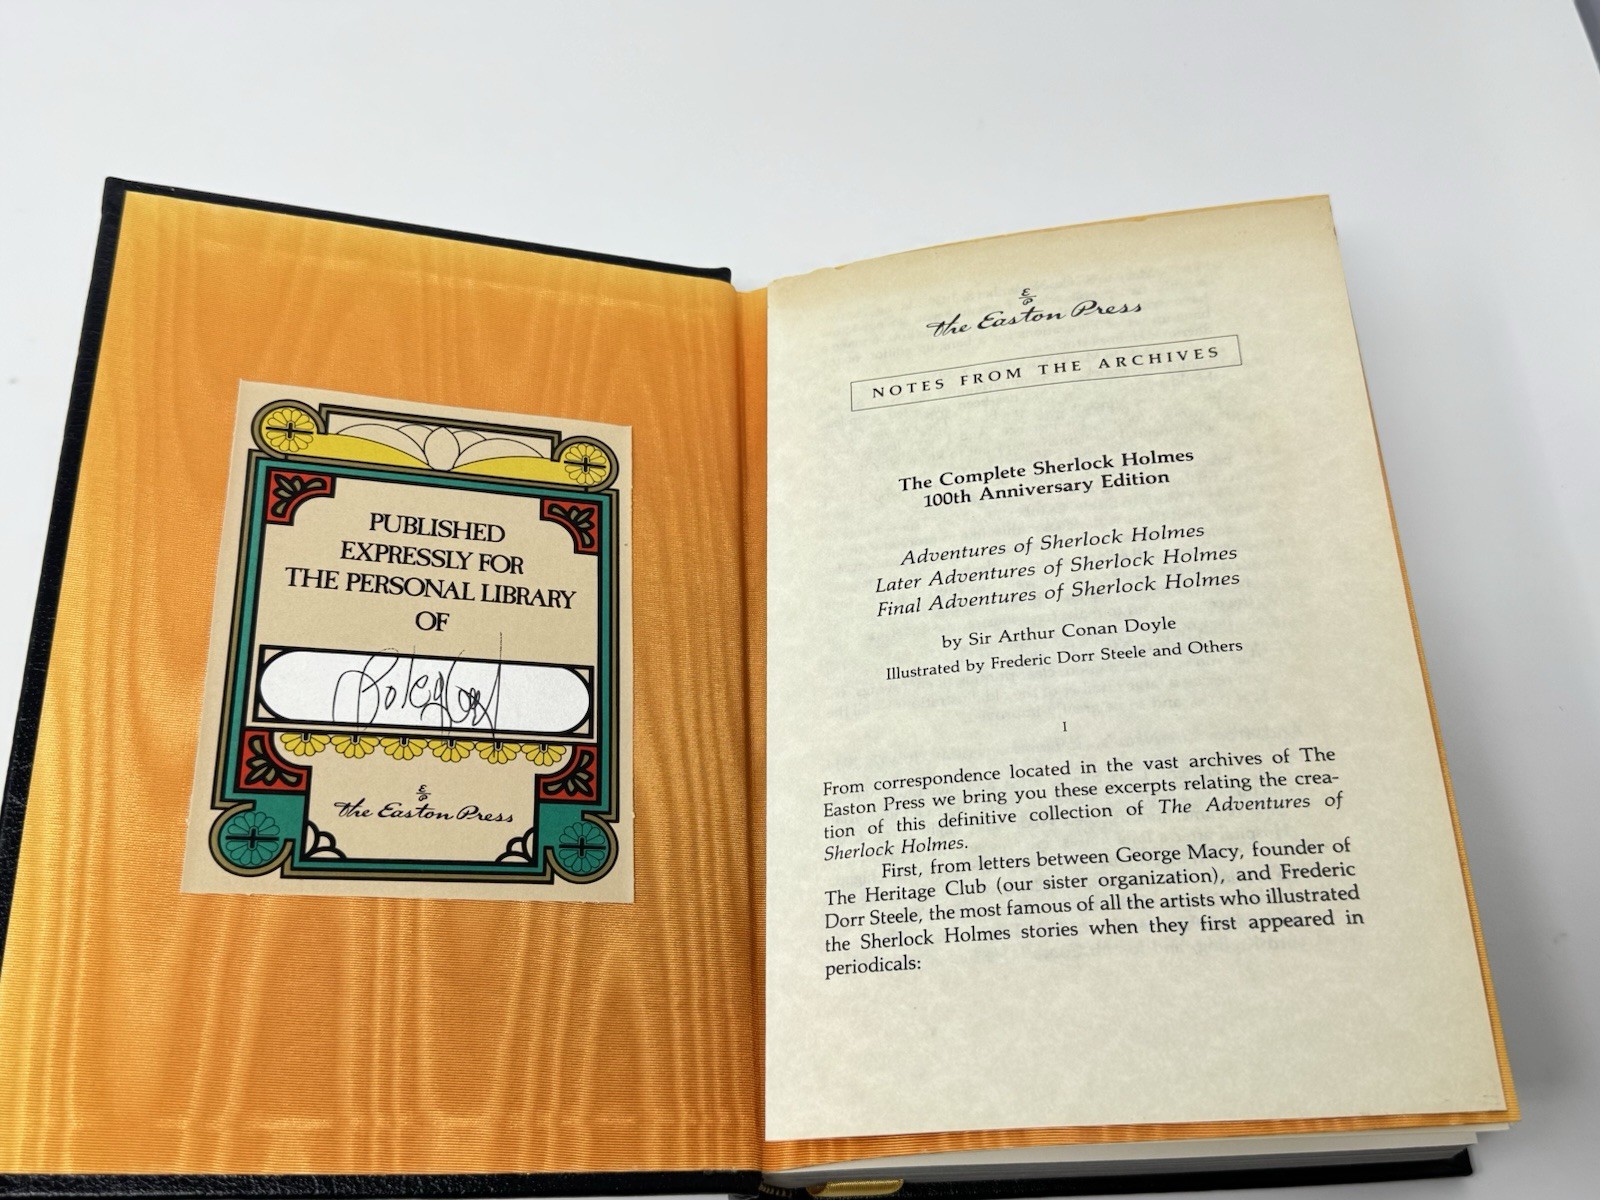 PUBLISHED
EXPRESSLY FOR
THE PERSONAL LIBRARY
OF
E/P
The Easton Press
E/P
The Easton Press
NOTES FROM THE ARCHIVES
The Complete Sherlock Holmes
100th Anniversary Edition
Adventures of Sherlock Holmes
Later Adventures of Sherlock Holmes
Final Adventures of Sherlock Holmes
by Sir Arthur Conan Doyle
Illustrated by Frederic Dorr Steele and Others
I
From correspondence located in the vast archives of The
Easton Press we bring you these excerpts relating the crea-
tion of this definitive collection of The Adventures of
Sherlock Holmes.
First, from letters between George Macy, founder of
The Heritage Club (our sister organization), and Frederic
Dorr Steele, the most famous of all the artists who illustrated
the Sherlock Holmes stories when they first appeared in
periodicals: